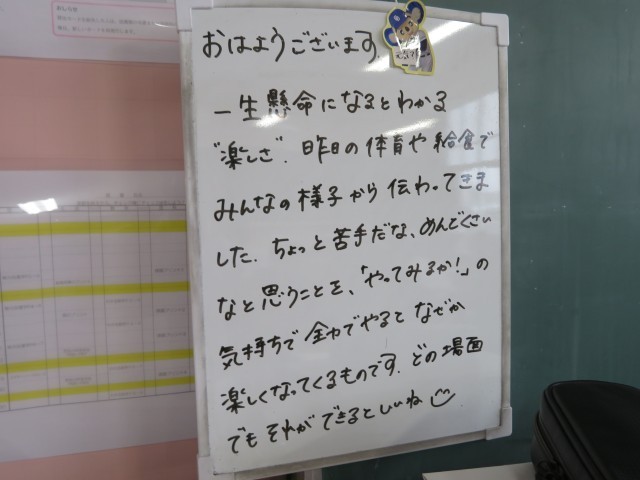 おはようございます.
一生懸命になるとわかる
"楽しさ". 昨日の体育や給食で
みんなの様子から伝わってきま
した. ちょっと苦手だな、めんどくさい
なと思うことを、「やってみるか!」の
気持ちで全力でやるとなぜか
楽しくなってくるものです. どの場面
でもそれができるといいね